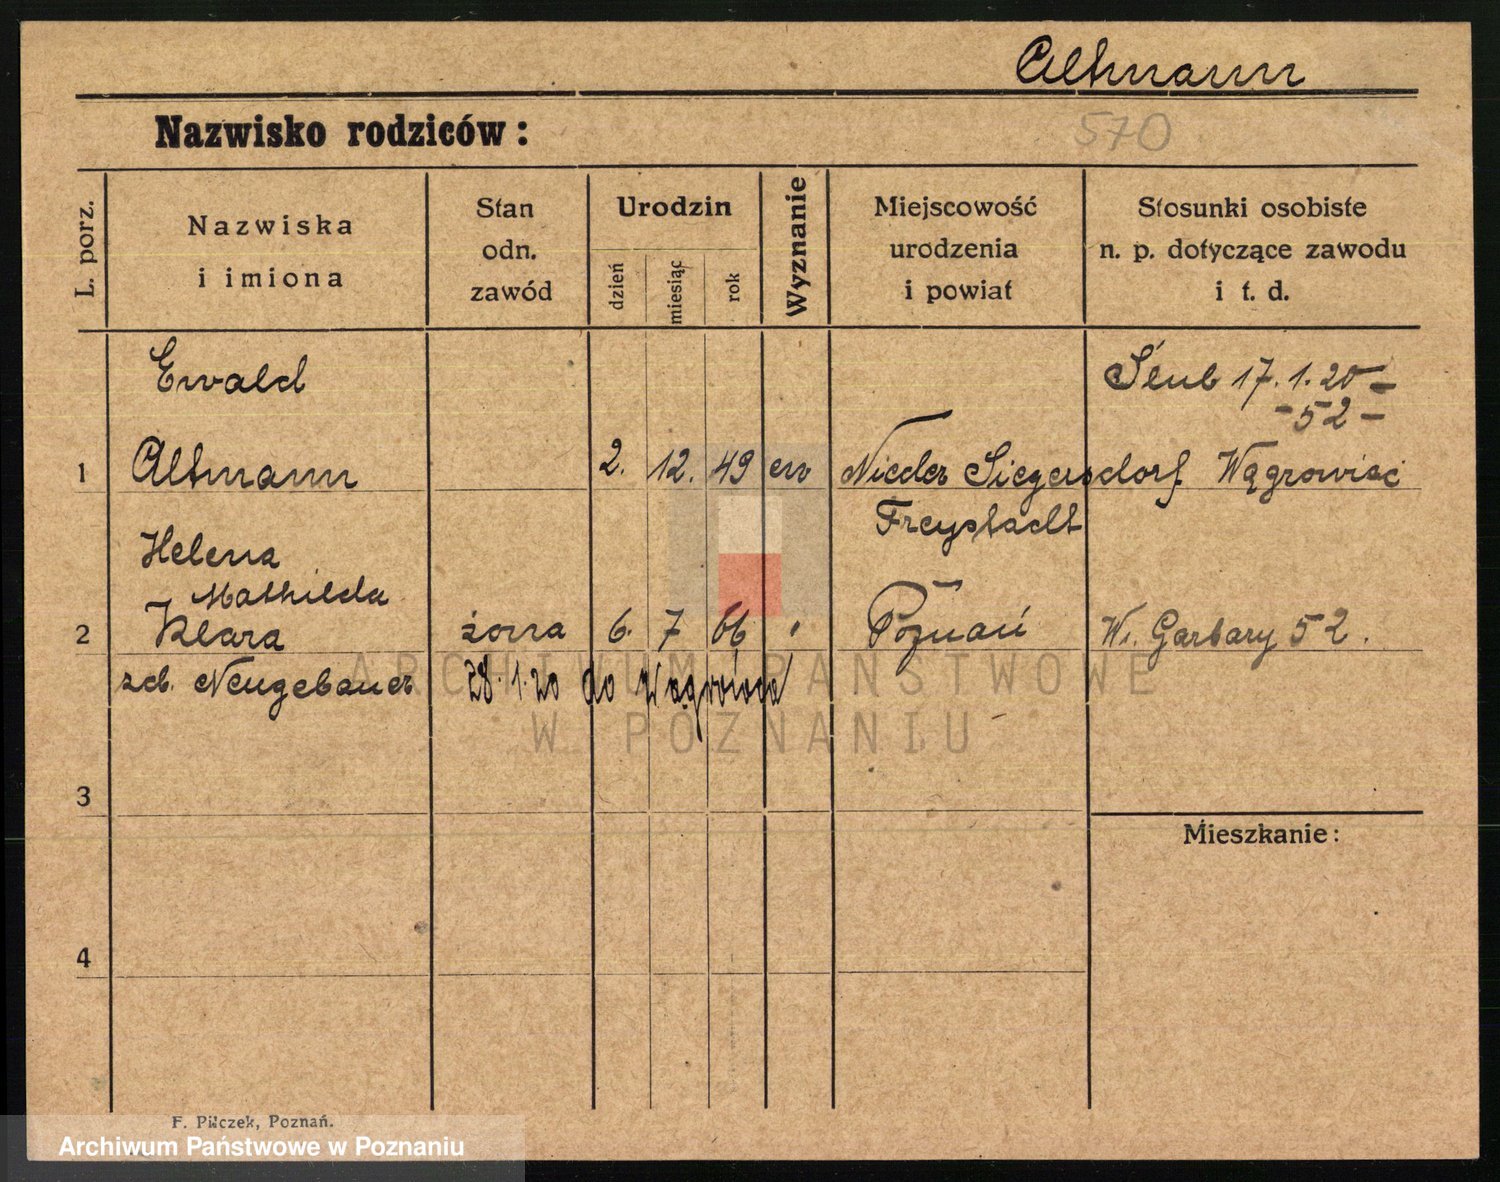 Altmann
Nazwisko rodziców:
570
L. porz.
Nazwiska
i imiona
Stan
odn.
zawód
Urodzin
dzień
miesiąc
rok
Wyznanie
Miejscowość
urodzenia
i powiat
Stosunki osobiste
n. p. dotyczące zawodu
i t. d.
Ewald
Ślub 17.1.20 –
– 52 –
1 Altmann 2. 12. 49 ew Nieder Siegersdorf Wągrowiec
Freystadt
Helena
Mathilda
2 Klara żona 6. 7 66 " Poznań W. Garbary 52.
zeb. Neugebauer 28.1.20 do Wągrowca
3
Mieszkanie:
4
F. Pilczek, Poznań.
ARCHIWUM PAŃSTWOWE
W POZNANIU
Archiwum Państwowe w Poznaniu